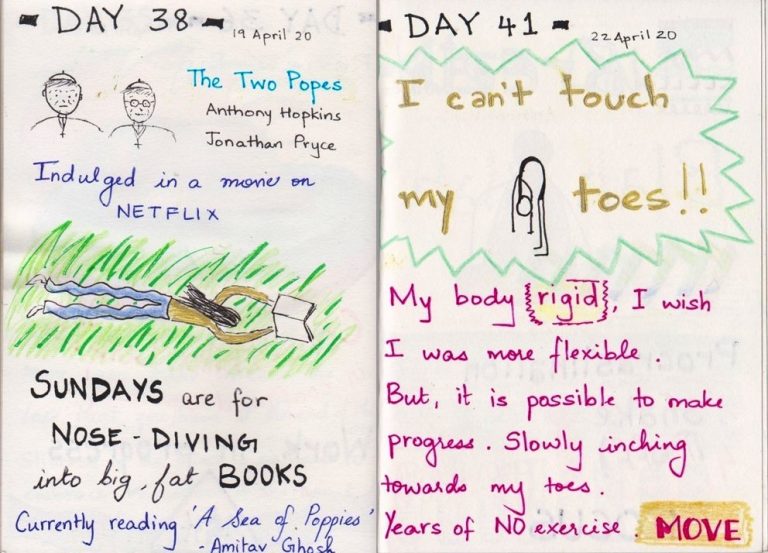 DAY 38
19 April 20
The Two Popes
Anthony Hopkins
Jonathan Pryce
Indulged in a movie on
NETFLIX
SUNDAYS are for
NOSE-DIVING
into big, fat BOOKS
Currently reading 'A Sea of Poppies'
- Amitav Ghosh
DAY 41
22 April 20
I can't touch
my toes!!
My body rigid, I wish
I was more flexible.
But, it is possible to make
progress. Slowly inching
towards my toes.
Years of NO exercise. MOVE